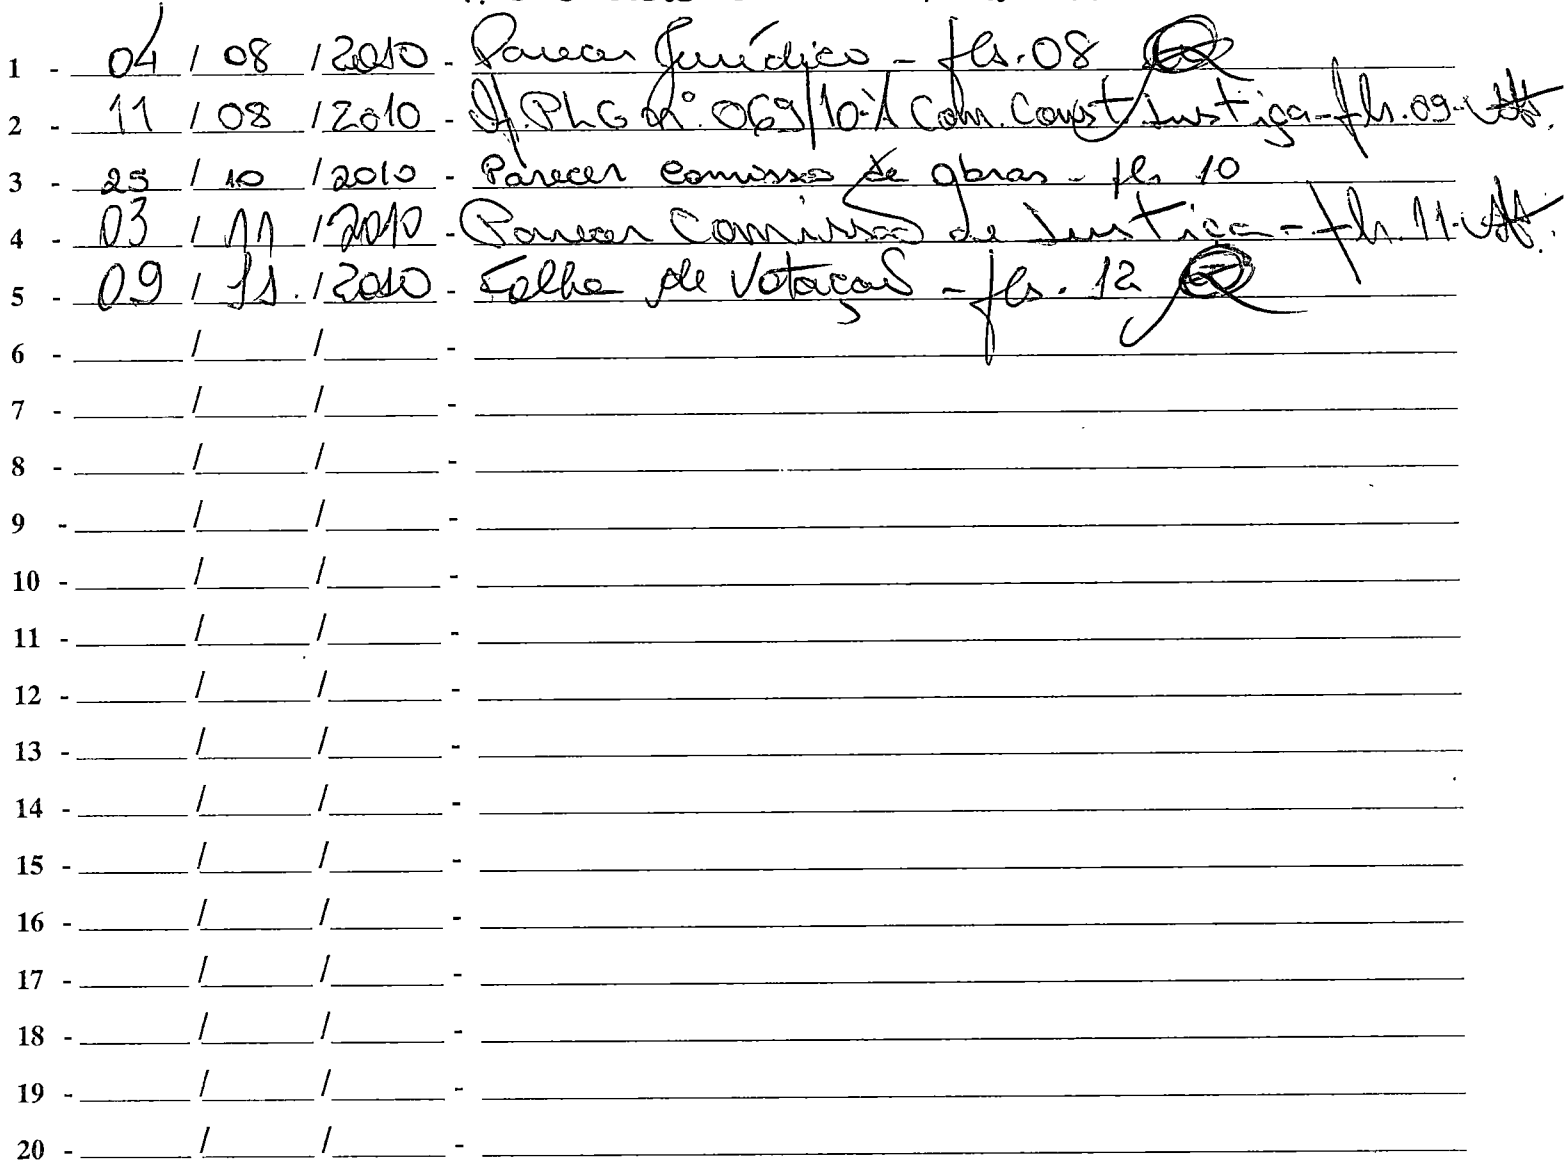 1 - 04 / 08 / 2010 - Parecer Jurídico - fls. 08
2 - 11 / 08 / 2010 - Of. PLG nº 069/10-À Com. Const Justiça - fls. 09
3 - 25 / 10 / 2010 - Parecer comissão de obras - fls 10
4 - 03 / 11 / 2010 - Parecer Comissão de Justiça - fls. 11
5 - 09 / 11 / 2010 - Folha de Votação - fls. 12
6 - / / -
7 - / / -
8 - / / -
9 - / / -
10 - / / -
11 - / / -
12 - / / -
13 - / / -
14 - / / -
15 - / / -
16 - / / -
17 - / / -
18 - / / -
19 - / / -
20 - / / -